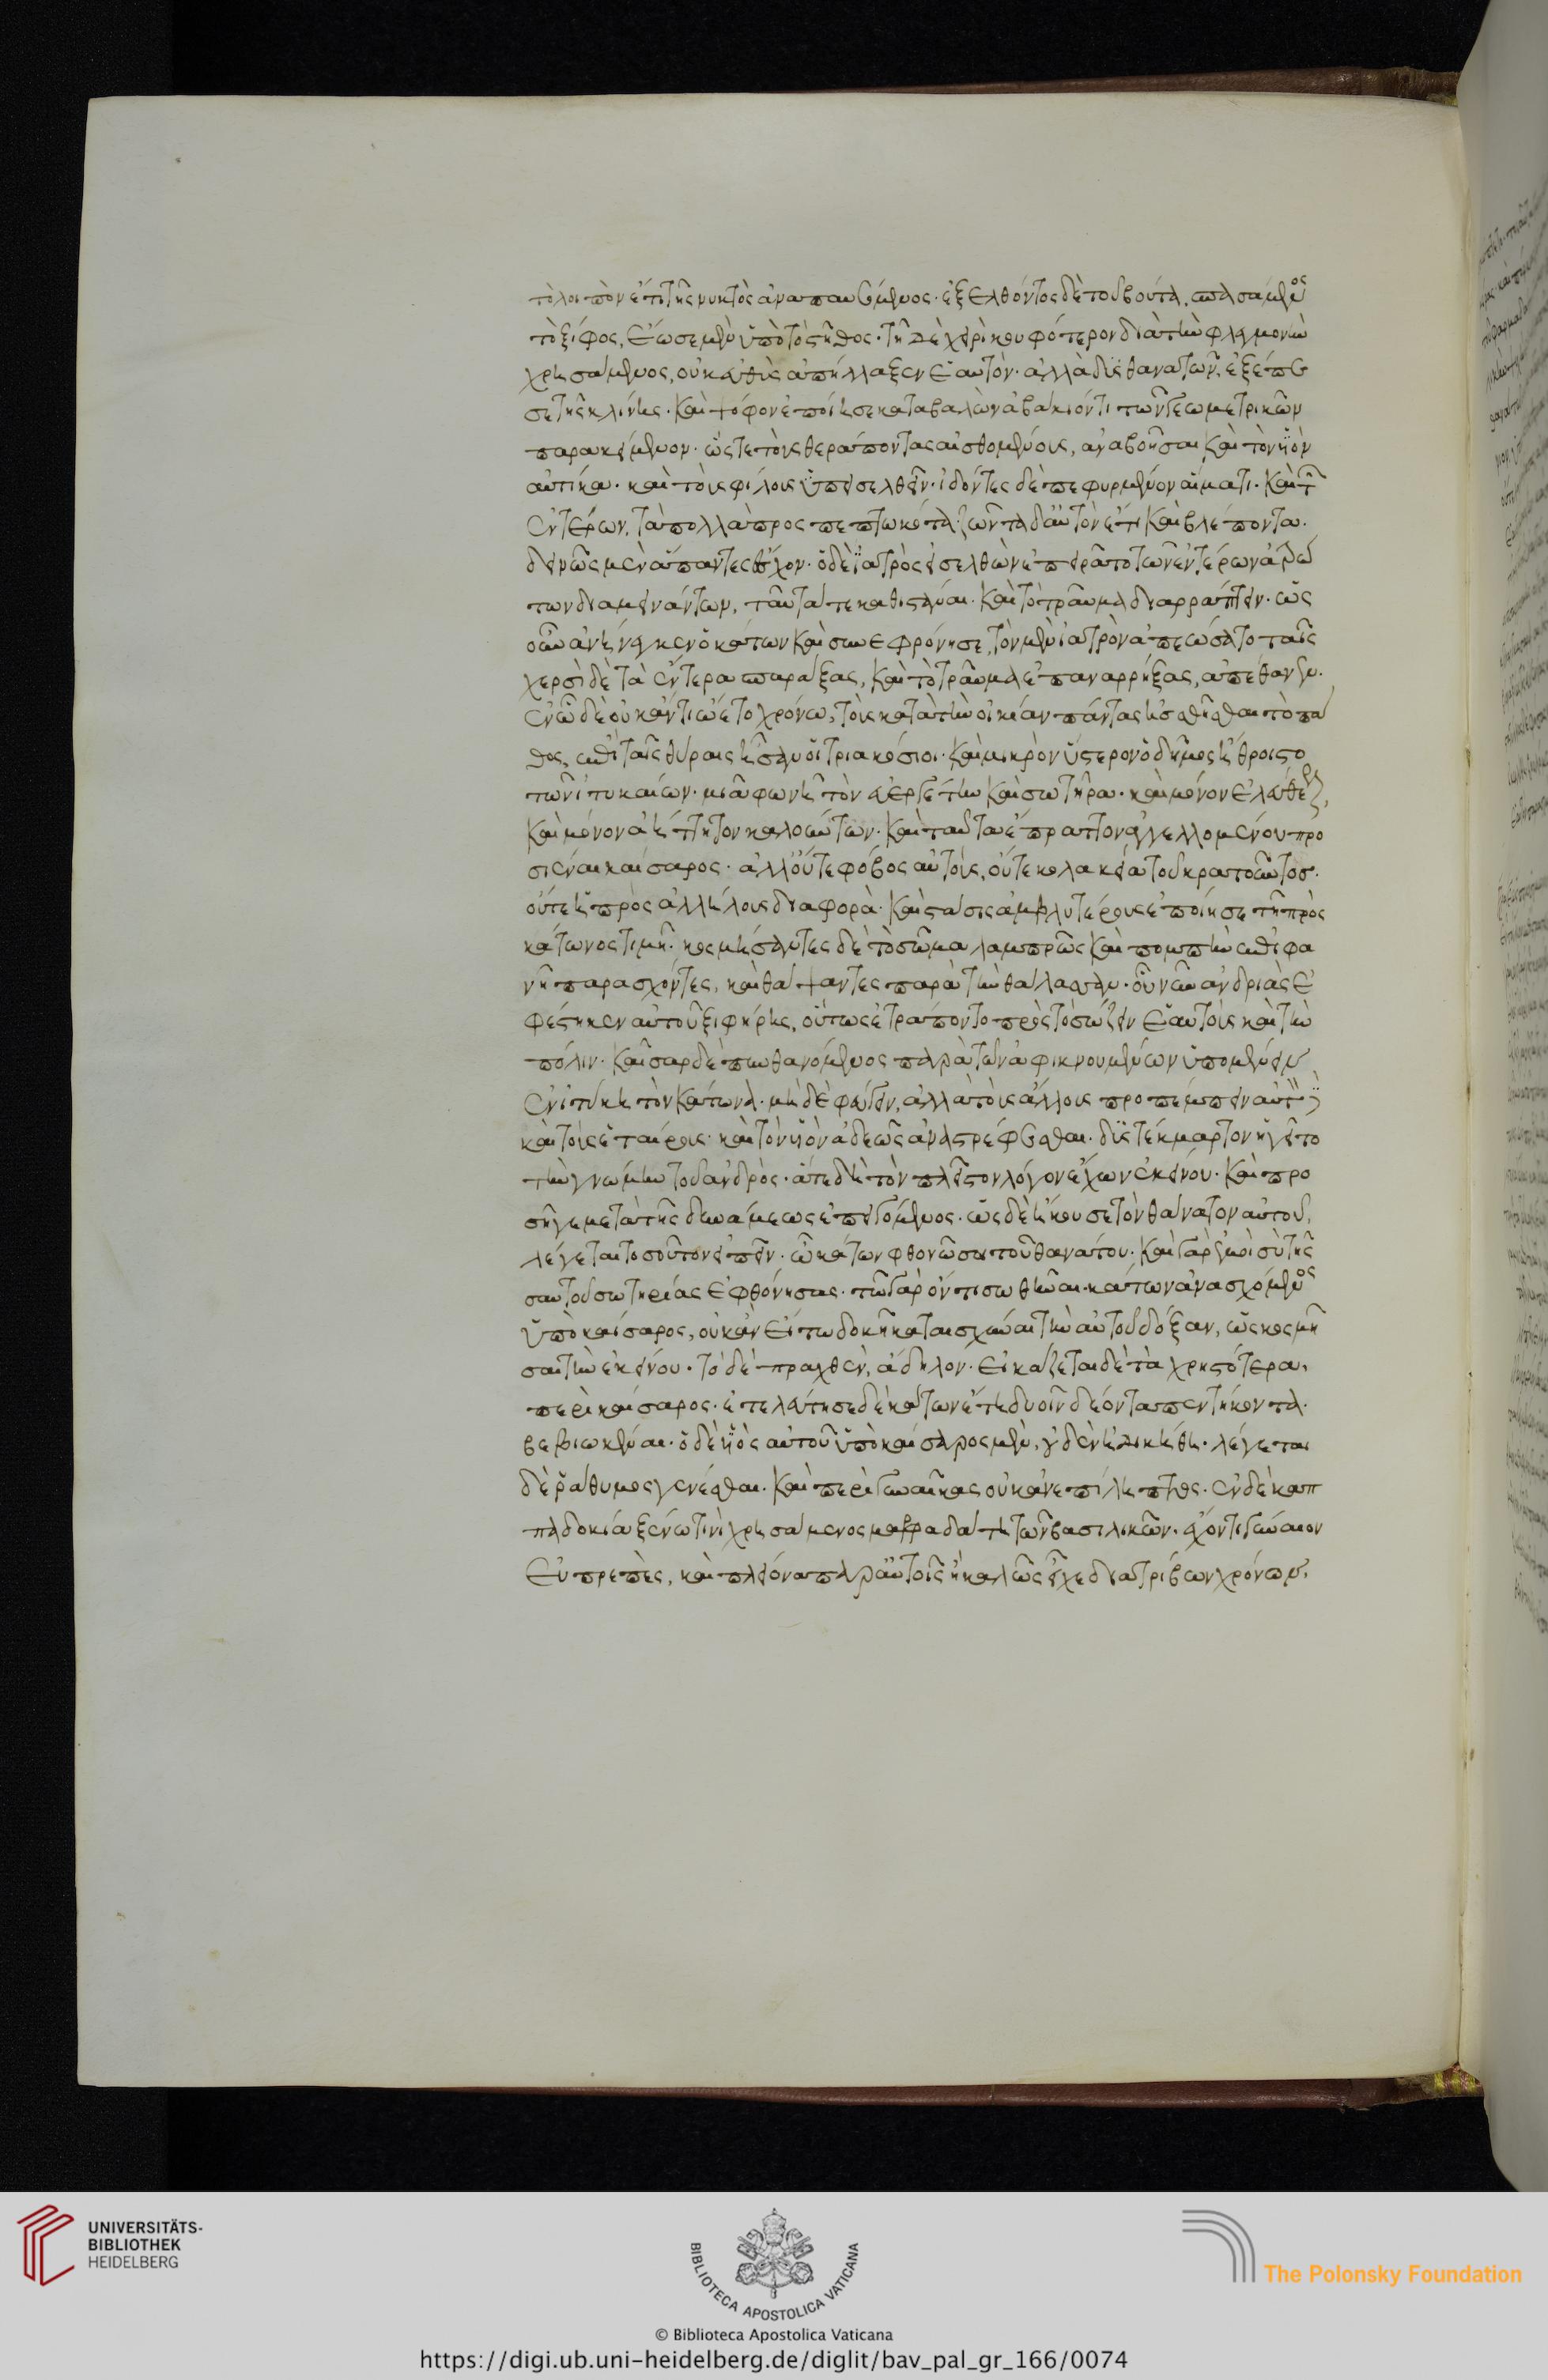 τὸ λοιπὸν ἔτι τῆς νυκτὸς ἀναπαυσόμενος. ἐξελθόντος δὲ τοῦ βούτα, σπασάμενος
τὸ ξίφος, ἔωσε μὲν ὑπὸ τὸ στῆθος. τῇ δὲ χειρὶ κουφότερον διὰ τὴν φλεγμονὴν
χρησάμενος, οὐκ εὐθὺς ἀπήλλαξεν ἑαυτὸν. ἀλλὰ δυσθανατῶν, ἐξέπε
σε τῆς κλίνης. καὶ ψόφον ἐποίησε καταβαλὼν ἀβάκιόν τι τῶν γεωμετρικῶν
παρακείμενον. ὥστε τοὺς θεράποντας αἰσθομένους, ἀναβοῆσαι καὶ τὸν υἱὸν
αὐτίκα. καὶ τοὺς φίλους ὑπεισελθεῖν. ἰδόντες δὲ πεφυρμένον αἵματι. καὶ τῶν
ἐντέρων, τὰ πολλὰ προσπεπτωκότα. ζῶντα δ' αὐτὸν ἔτι καὶ βλέποντα.
δεινῶς μὲν ἅπαντες ἔσχον. ὁ δὲ ἰατρὸς εἰσελθὼν ἐπειρᾶτο τῶν ἐντέρων ἀτρώ
των διαμεινάντων, ταῦτά τε καθιστάναι. καὶ τὸ τραῦμα διαρράπτειν. ὡς
οὖν ἀνήνεγκεν ὁ κάτων καὶ συνεφρόνησε, τὸν μὲν ἰατρὸν ἀπεώσατο ταῖς
χερσὶ δὲ τὰ ἔντερα σπαράξας, καὶ τὸ τραῦμα ἐπαναρρήξας, ἀπέθανεν.
ἐν ᾧ δὲ οὐκ ἄν τις ᾤετο χρόνῳ, τοὺς κατὰ τὴν οἰκίαν πάντας ᾐσθῆσθαι τὸ πά
θος, ἐπὶ ταῖς θύραις ἦσαν οἱ τριακόσιοι. καὶ μικρὸν ὕστερον ὁ δῆμος ἤθροιστο
τῶν ἰτυκαίων. μιᾷ φωνῇ τὸν εὐεργέτην καὶ σωτῆρα. καὶ μόνον ἐλεύθερον,
καὶ μόνον ἀήττητον καλούντων. καὶ ταῦτα ἔπραττον ἀγγελλομένου προ
σιέναι καίσαρος. ἀλλ' οὔτε φόβος αὐτοὺς, οὔτε κολακεία τοῦ κρατοῦντος.
οὔτε ἡ πρὸς ἀλλήλους διαφορὰ. καὶ στάσις ἀμβλυτέρους ἐποίησε τῆς πρὸς
κάτωνος τιμῆς. κοσμήσαντες δὲ τὸ σῶμα λαμπρῶς καὶ πομπὴν ἐπιφα
νῆ παρασχόντες, καὶ θάψαντες παρὰ τὴν θάλασσαν. οὗ νῦν ἀνδριὰς ἐ
φέστηκεν αὐτοῦ ξιφήρης, οὕτως ἐτράποντο πρὸς τὸ σώζειν ἑαυτοὺς καὶ τὴν
πόλιν. καῖσαρ δὲ πυνθανόμενος παρὰ τῶν ἀφικνουμένων ὑπομένειν
ἐν ἰτύκῃ τὸν κάτωνα. μὴ δὲ φεύγειν, ἀλλὰ τοὺς ἄλλους προπέμπειν αὐτὸν
καὶ τοὺς ἑταίρους. καὶ τὸν υἱὸν ἀδεῶς ἀναστρέφεσθαι. δυστέκμαρτον ἡγεῖτο
τὴν γνώμην τοῦ ἀνδρὸς. ἅτε δὴ τὸν πλεῖστον λόγον ἔχων ἐκείνου. καὶ προ
σῆγε μετὰ τῆς δυνάμεως ἐπειγόμενος. ὡς δὲ ἤκουσε τὸν θάνατον αὐτοῦ,
λέγεται τοσοῦτον εἰπεῖν. ὦ κάτων φθονῶ σοι τοῦ θανάτου. καὶ γὰρ ἐμοὶ σὺ τῆς
σαυτοῦ σωτηρίας ἐφθόνησας. τῷ γὰρ ὄντι σωθῆναι κάτων ἀνασχόμενος
ὑπὸ καίσαρος, οὐκ ἂν εἴπω δοκῇ καταισχῦναι τὴν αὑτοῦ δόξαν, ὡς κοσμῆ
σαι τὴν ἐκείνου. τὸ δὲ πραχθὲν, ἄδηλον. εἰκάζεται δὲ τὰ χρηστότερα,
περὶ καίσαρος. ἐτελεύτησε δὲ κάτων ἔτη δυοῖν δέοντα πεντήκοντα.
βεβιωκέναι. ὁ δὲ υἱὸς αὐτοῦ ὑπὸ καίσαρος μὲν, οὐδὲν ἠδικήθη. λέγεται
δὲ ῥάθυμος γενέσθαι. καὶ περὶ γυναῖκας οὐκ ἀνεπίληπτος. ἐν δὲ καπ
παδοκίᾳ ξένῳ τινὶ χρησάμενος μαρφαδάτῃ τῶν βασιλικῶν. ἔχοντι γύναιον
εὐπρεπὲς, καὶ πλείονα παρ' αὐτοῖς ἢ καλῶς εἶχε διατρίβων χρόνον,
UNIVERSITÄTS-
BIBLIOTHEK
HEIDELBERG
BIBLIOTECA APOSTOLICA VATICANA
The Polonsky Foundation
© Biblioteca Apostolica Vaticana
https://digi.ub.uni-heidelberg.de/diglit/bav_pal_gr_166/0074